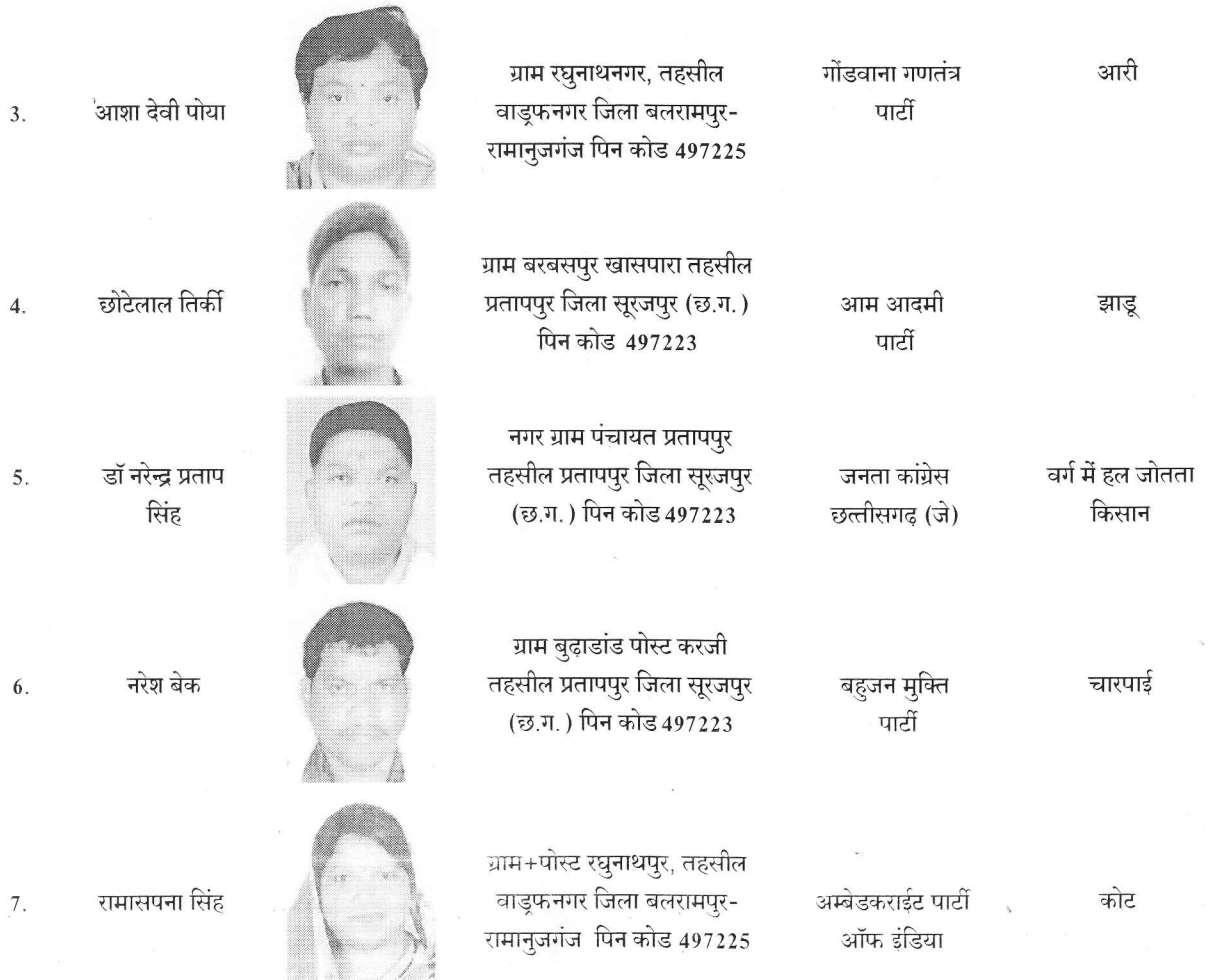 3. आशा देवी पोया ग्राम रघुनाथनगर, तहसील वाड्रफनगर जिला बलरामपुर-रामानुजगंज पिन कोड 497225 गोंडवाना गणतंत्र पार्टी आरी
4. छोटेलाल तिर्की ग्राम बरबसपुर खासपारा तहसील प्रतापपुर जिला सूरजपुर (छ.ग.) पिन कोड 497223 आम आदमी पार्टी झाडू
5. डॉ नरेन्द्र प्रताप सिंह नगर ग्राम पंचायत प्रतापपुर तहसील प्रतापपुर जिला सूरजपुर (छ.ग.) पिन कोड 497223 जनता कांग्रेस छत्तीसगढ़ (जे) वर्ग में हल जोतता किसान
6. नरेश बेक ग्राम बुढ़ाडांड पोस्ट करजी तहसील प्रतापपुर जिला सूरजपुर (छ.ग.) पिन कोड 497223 बहुजन मुक्ति पार्टी चारपाई
7. रामासपना सिंह ग्राम+पोस्ट रघुनाथपुर, तहसील वाड्रफनगर जिला बलरामपुर-रामानुजगंज पिन कोड 497225 अम्बेडकराईट पार्टी ऑफ इंडिया कोट